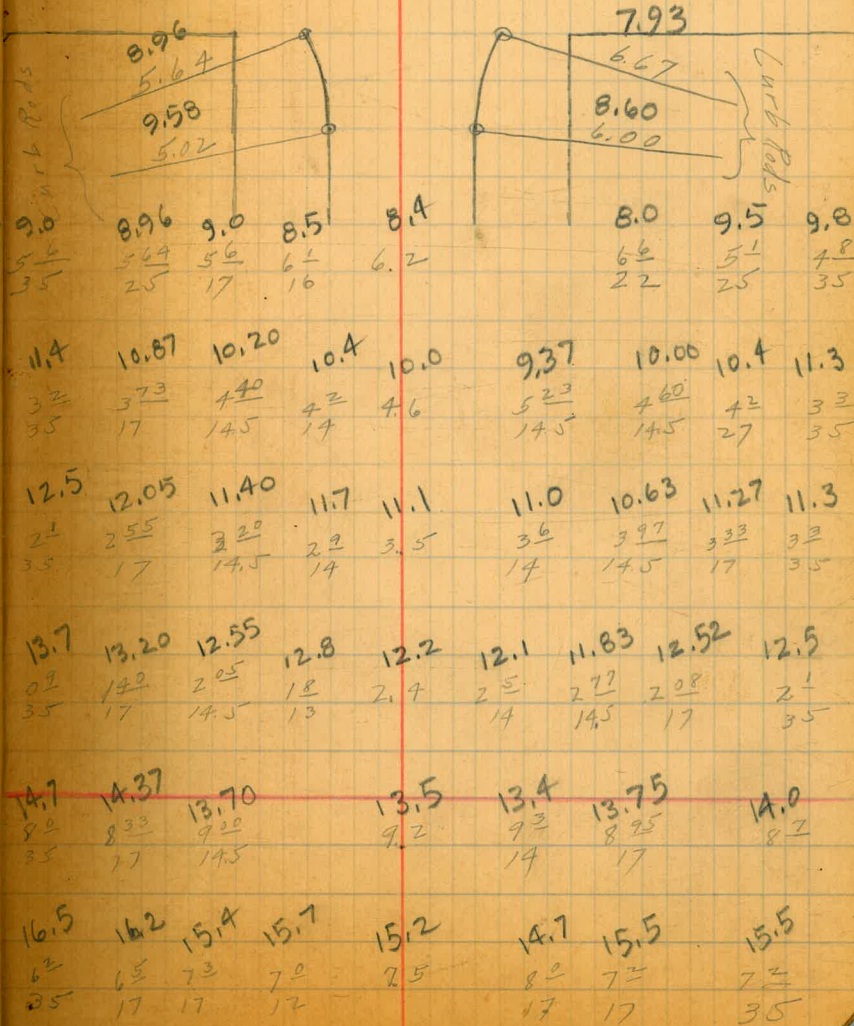 8.96 7.93
5.64 6.67
9.58 8.60
5.02 6.00
Curb Rods Curb Rods
9.0 8.96 9.0 8.5 8.4 8.0 9.5 9.8
5 6 5 64 5 6 6 1 6.2 6 6 5 1 4 8
35 25 17 16 22 25 35
11.4 10.87 10.20 10.4 10.0 9.37 10.00 10.4 11.3
3 2 3 73 4 40 4 2 4.6 5 23 4 60 4 2 3 3
35 17 14.5 14 14.5 14.5 27 35
12.5 12.05 11.40 11.7 11.1 11.0 10.63 11.27 11.3
2 1 2 55 3 20 2 9 3.5 3 6 3 97 3 33 3 3
35 17 14.5 14 14 14.5 17 35
13.7 13.20 12.55 12.8 12.2 12.1 11.83 12.52 12.5
0 9 1 40 2 05 1 8 2.4 2 5 2 77 2 08 2 1
35 17 14.5 13 14 14.5 17 35
14.7 14.37 13.70 13.5 13.4 13.75 14.0
8 0 8 33 9 00 9.2 9 3 8 95 8 7
35 17 14.5 14 17
16.5 16.2 15.4 15.7 15.2 14.7 15.5 15.5
6 2 6 5 7 3 7 0 7.5 8 0 7 2 7 2
35 17 17 12 17 17 35